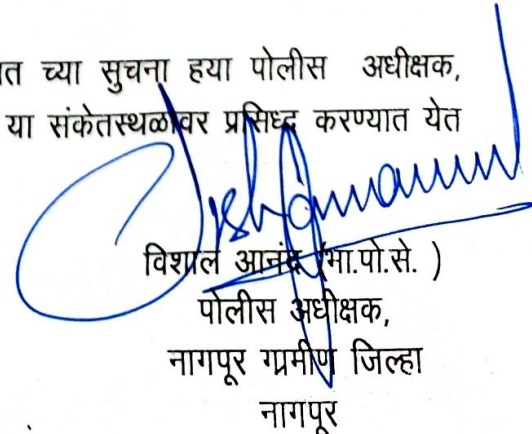 त च्या सुचना हया पोलीस अधीक्षक,
या संकेतस्थळावर प्रसिध्द करण्यात येत
विशाल आनंद (भा.पो.से. )
पोलीस अधीक्षक,
नागपूर ग्रमीण जिल्हा
नागपूर